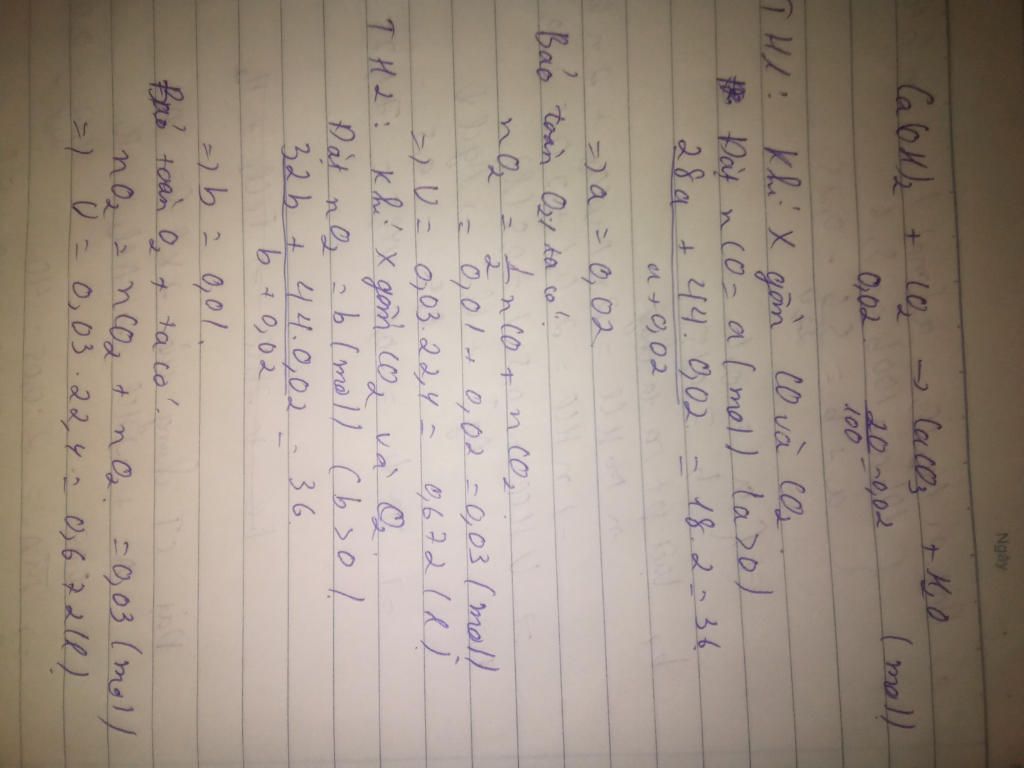 Ca(OH)2 + CO2 → CaCO3 + H2O
0,02 20/100 = 0,02 (mol)
TH1: Khí X gồm CO và CO2
Đặt nCO = a (mol) (a > 0)
28a + 44.0,02 / a + 0,02 = 18.2 = 36
=> a = 0,02
Bảo toàn O2, ta có:
nO2 = 1/2 nCO + nCO2
= 0,01 + 0,02 = 0,03 (mol)
=> V = 0,03.22,4 = 0,672 (l)
TH2: Khí X gồm CO2 và O2
Đặt nO2 = b (mol) (b > 0)
32b + 44.0,02 / b + 0,02 = 36
=> b = 0,01
Bảo toàn O2, ta có:
nO2 = nCO2 + nO2 = 0,03 (mol)
=> V = 0,03.22,4 = 0,672 (l)
Ngày